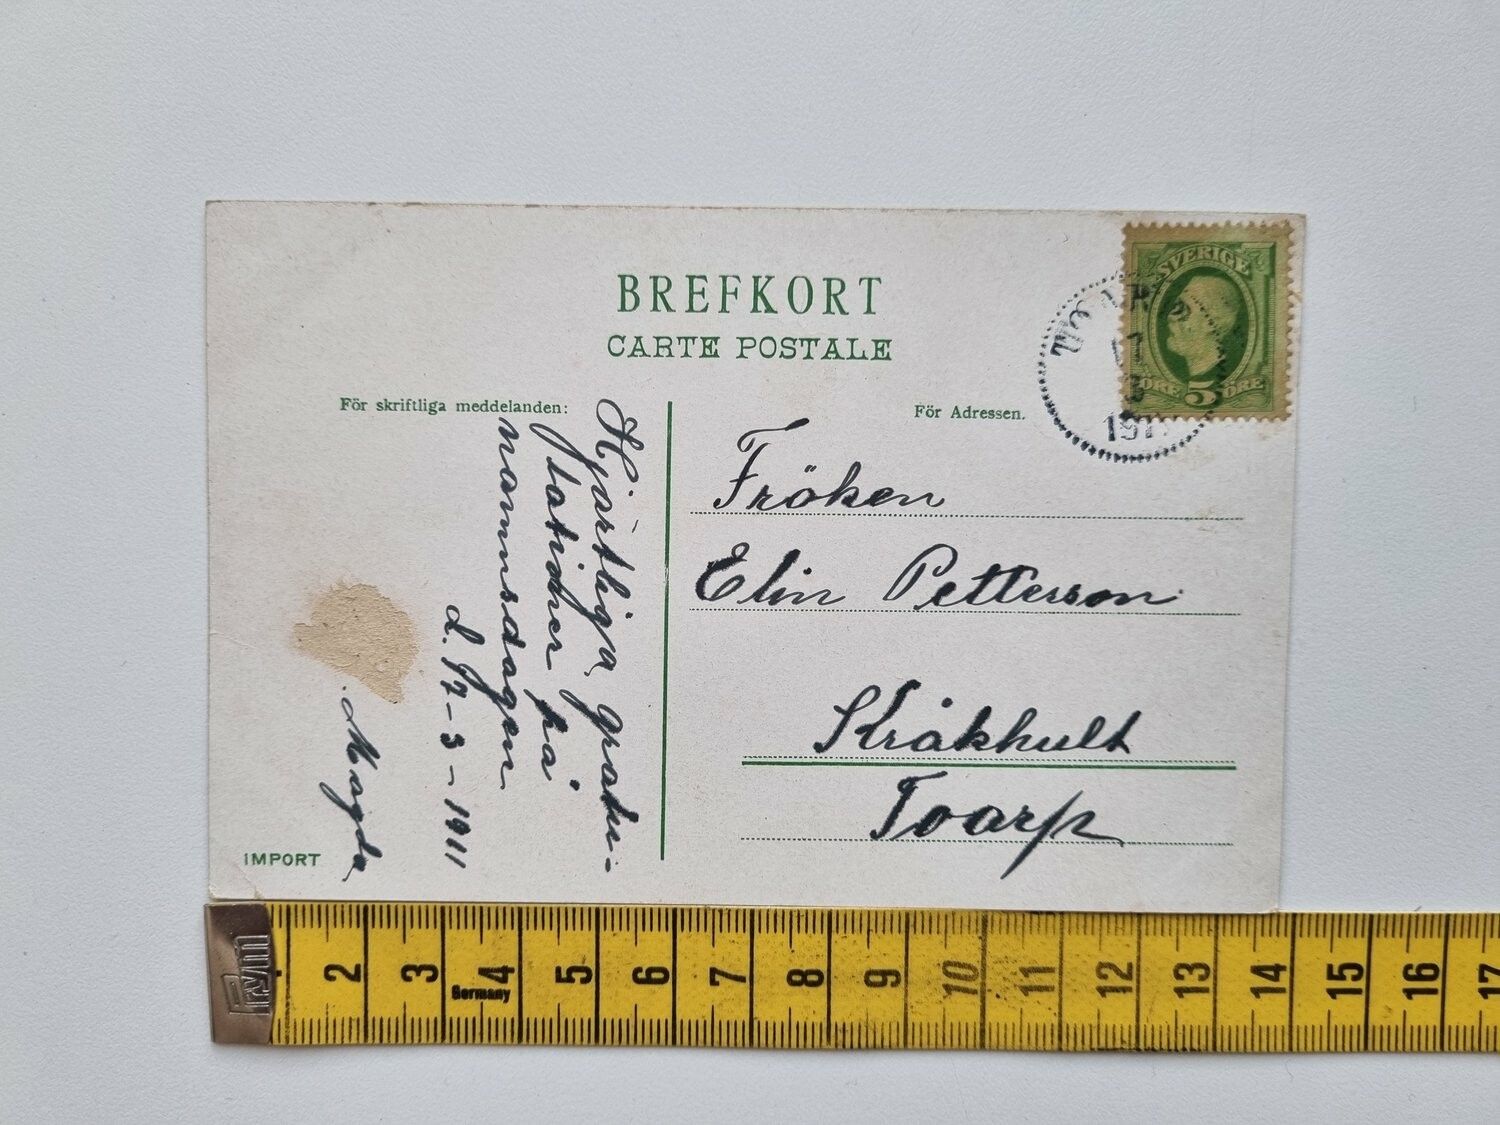 BREFKORT
CARTE POSTALE
För skriftliga meddelanden:
För Adressen.
SVERIGE
ÖRE 5 ÖRE
17
3
Hjärtliga gratu-
lationer på
namnsdagen
d. 17-3-1911
Magda
Fröken
Elin Petterson
Kråkhult
Toarp
IMPORT
Prym
2 3 4 5 6 7 8 9 10 11 12 13 14 15 16 17
Germany